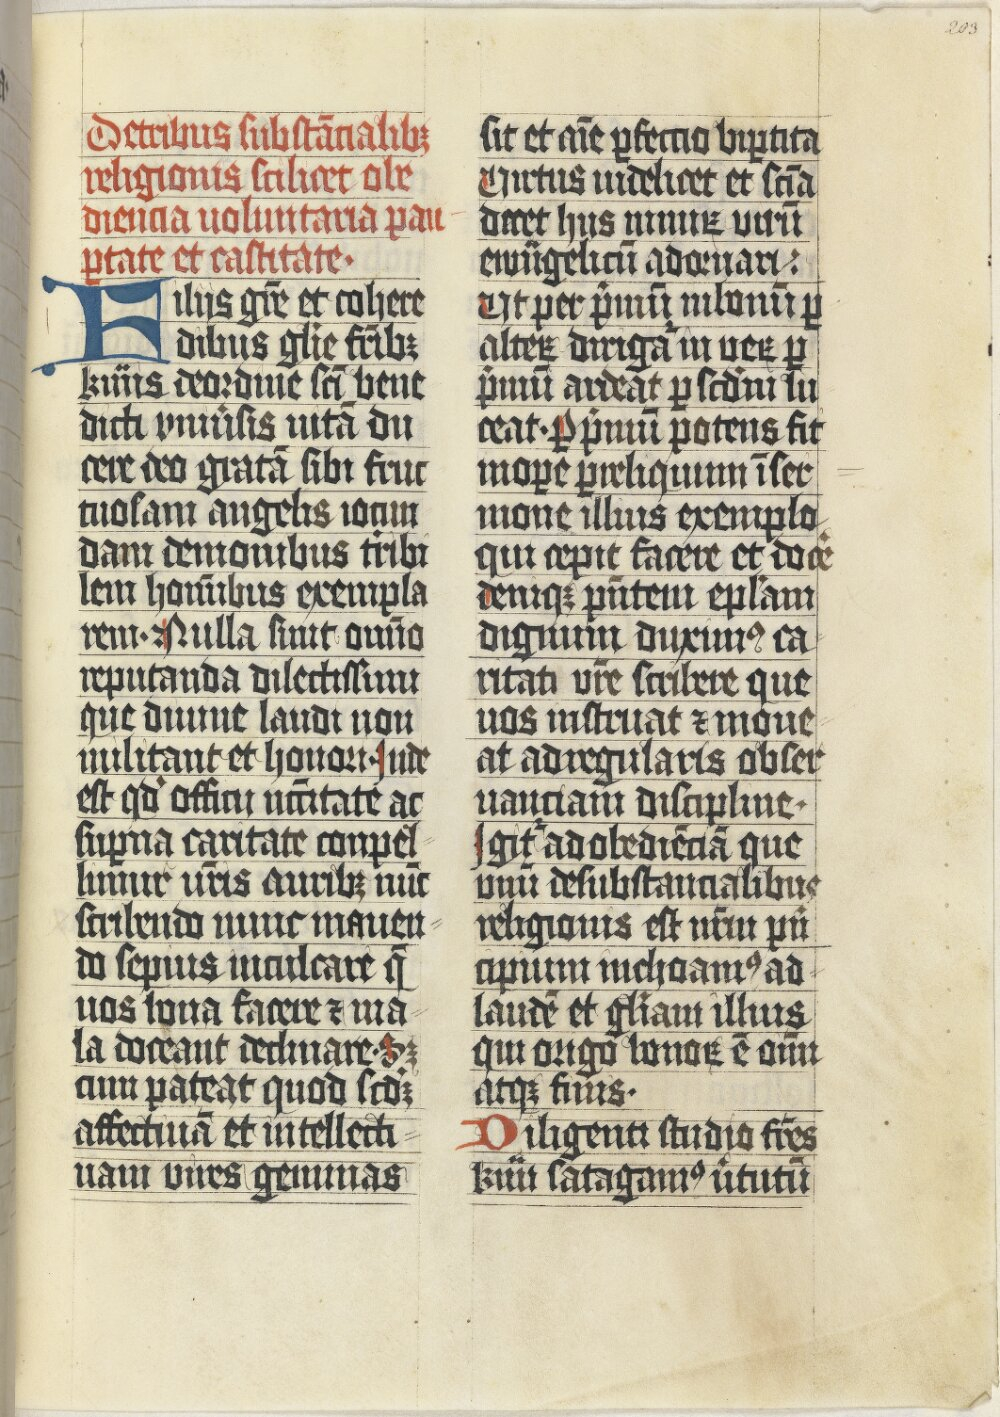 203
De tribus substācialibꝫ
religionis scilicet obe
diencia uoluntaria pau
ꝑtate et castitate·
Filijs gr̄e et cohere
dibus glīe fr̄ibꝫ
de ordine sc̄i bene
dicti vniūsis uitā du
cere deo gratā sibi fruc
tuosam angelis iocun
dam demonibus t̄ribi
lem hoīnibus exempla
rem· Nulla sunt om̄īo
reputanda dilectissimi
que diuine laudi non
militant et honori· Inde
est qd̄ officii nc̄citate ac
suꝑna caritate conpel
limur ur̄is auribꝫ nūc
scribendo nunc mouen
do sepius inculcare q̄
uos bona facere ⁊ ma
la doceant declinare· Sꝫ
cum pateat quod scd̄ꝫ
affectiuā et intellecti
uam vires geminas
sit et aīe ꝑfectio biꝑtita
Uirtus uidelicet et scīa
decet hijs nimiꝝ virū
ewāgelicū adornari·
Ut per p̄mū ꝑ
alteꝝ dirigāt̄ in ueꝝ ꝑ
p̄mū ardeat ꝑ scd̄m lu
ceat· ꝑ p̄mū potens fit
in oꝑe ꝑ reliquum ī ser
mone illius exemplo
qui cepit facere et docē
deniqꝫ pn̄tem epl̄am
dignum duximꝰ ca
ritati vr̄e scribere que
uos instruat ⁊ moue
at ad regularis obser
uanciam discipline·
Igit̄ ad obediēciā que
vnū de substancialibus
religionis est nr̄m pn̄
cipium inchoamꝰ ad
laudē et glīam illius
qui origo bonoꝝ ē om̄iū
atqꝫ finis·
Diligenti studio fr̄es
satagamꝰ ūtutū